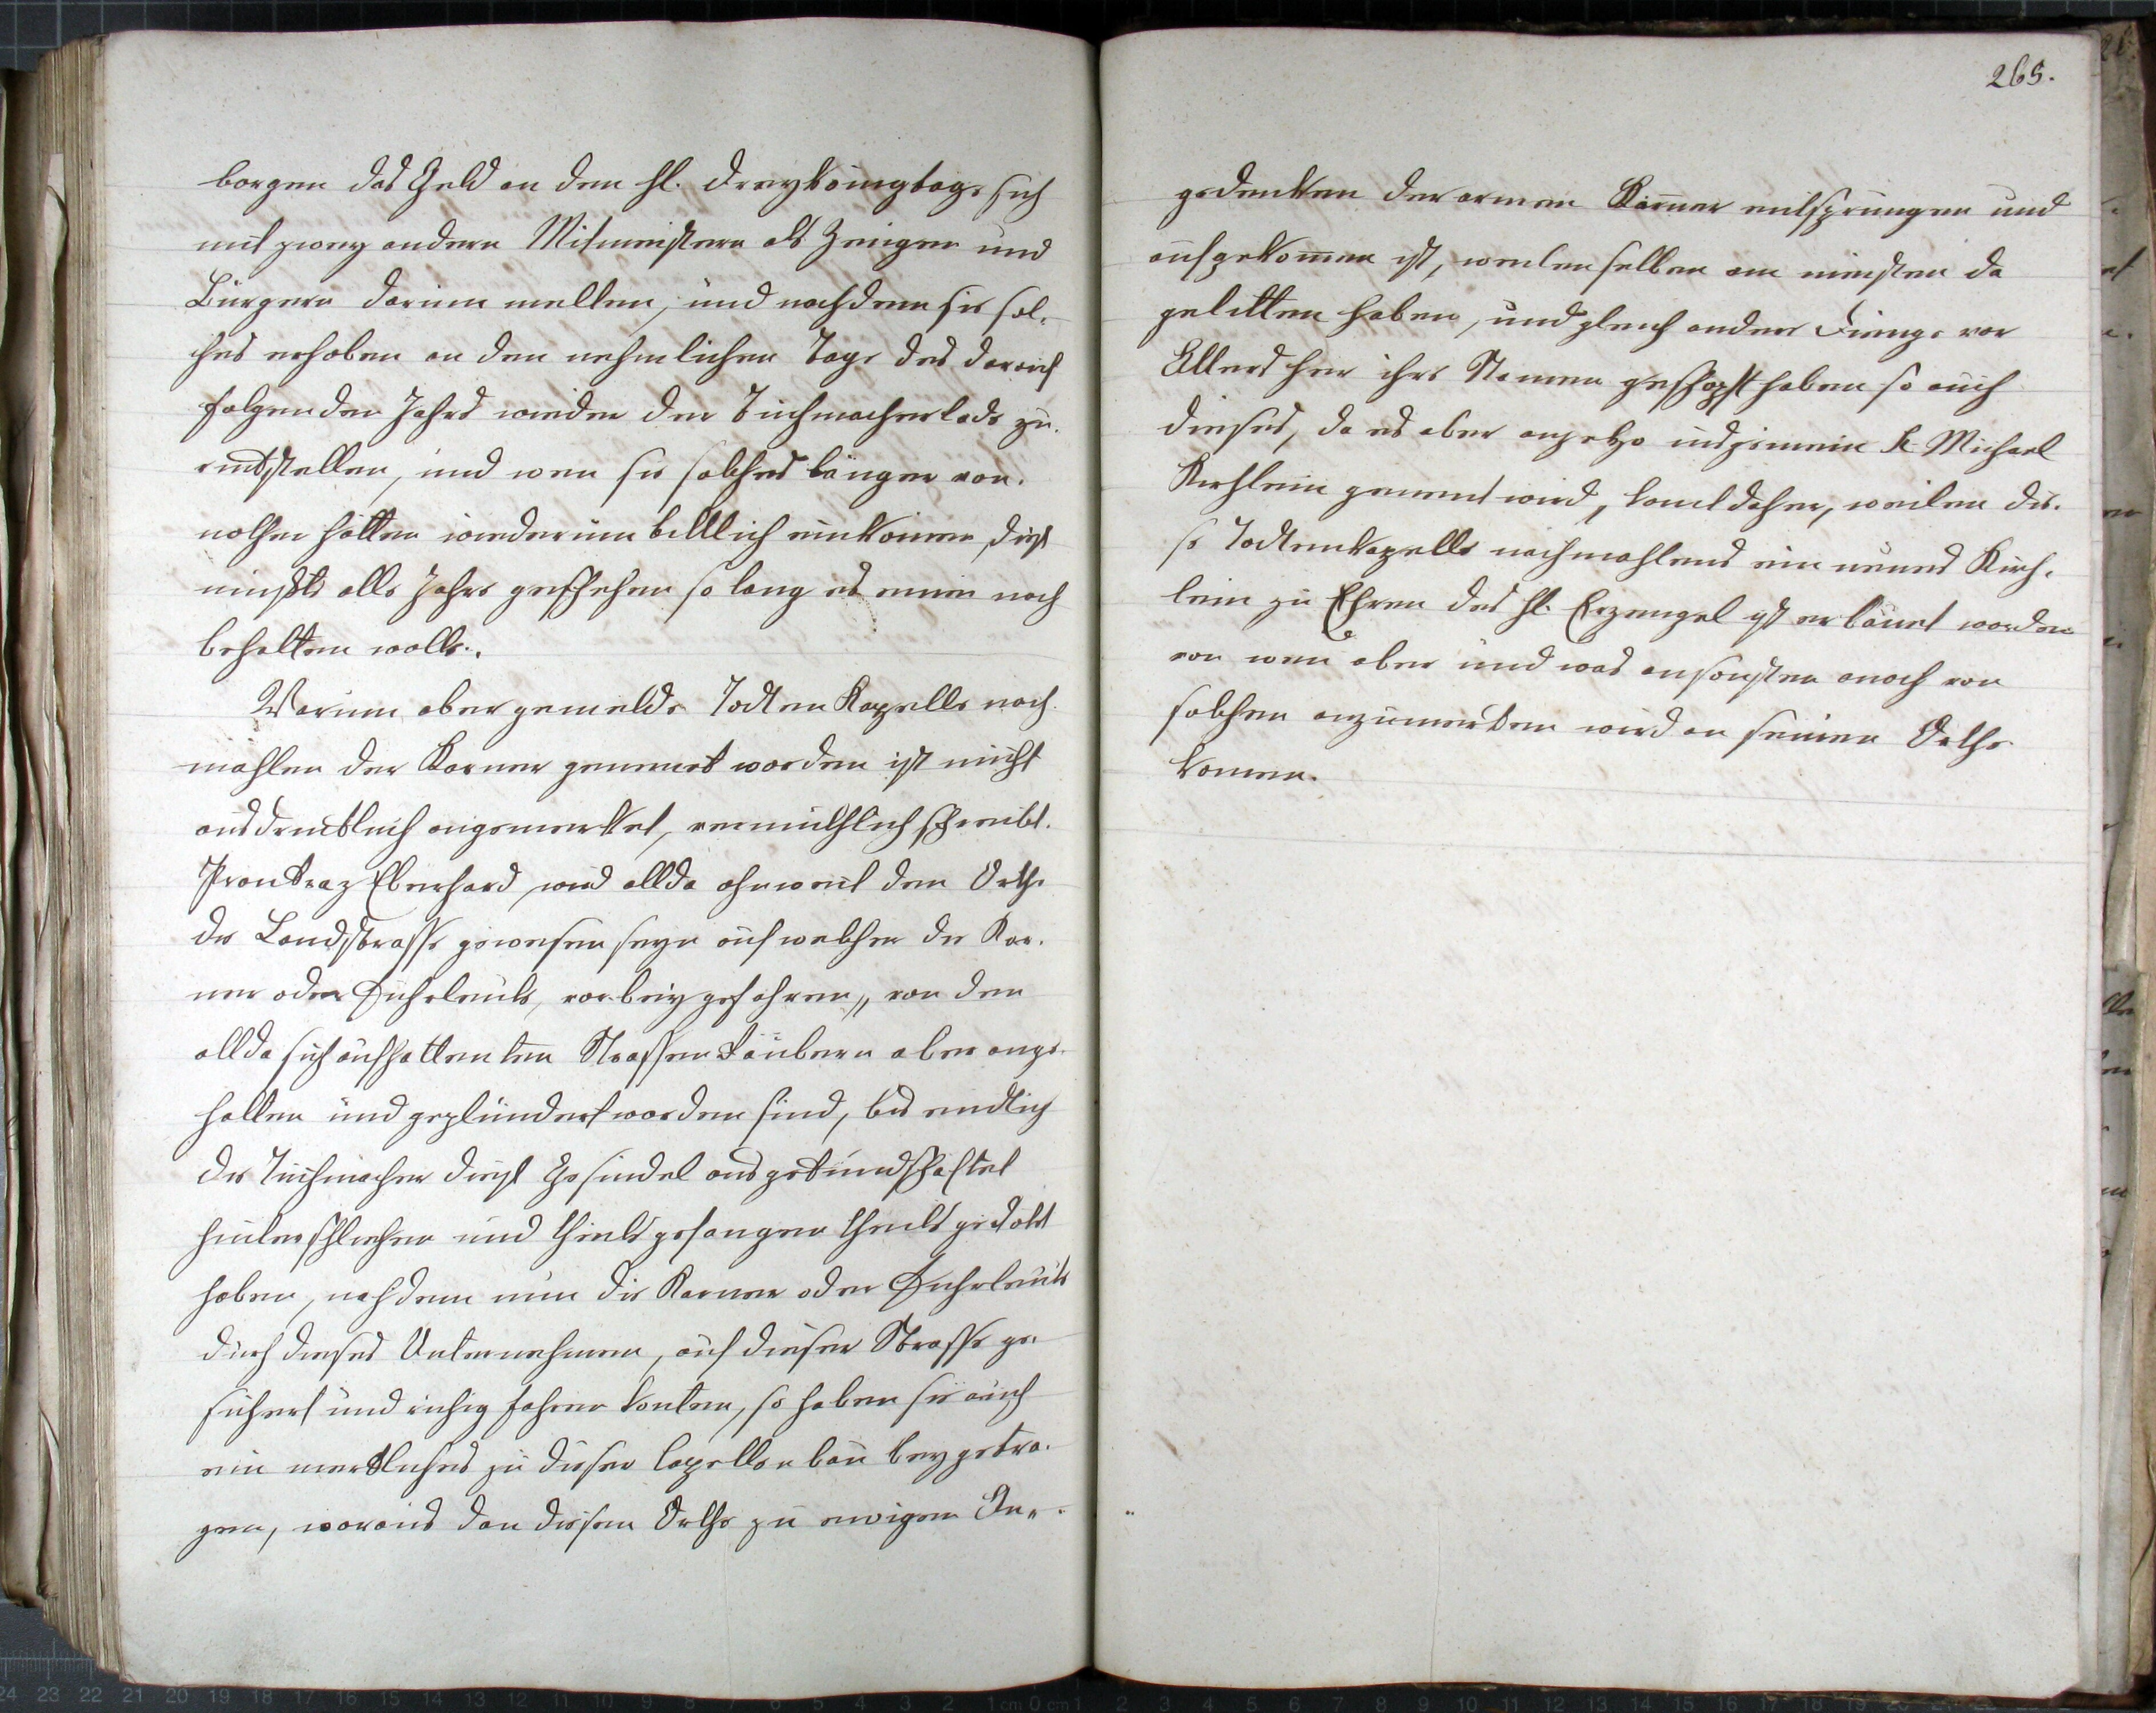 borgen das Geld an dem hl. Dreykönigtage sich
mit zwey andern Mitmeistern als Zeugen und
Bürgern darum melten, und nachdem sie sol-
ches erhoben an den nehmlichen Tage des darauf
folgenden Jahrs wieder der Tuchmacherlade zu-
ruckstellen, und wen sie solches länger von-
nothen hätten wiederum bittlich einkomen, diess
müsste alle Jahre geschehen so lang es einer noch
behalten wolle.
Warum aber gemelde Todten Kapelle nach-
mahlen der Karner genennet worden ist nicht
ausdrucklich angemerket, vermuthlich schreibt
Prontraz Eberhard wird allda ohnweit dem Orth
die Landstrasse gewesen seyn auf welcher die Kar-
ner oder Fuhrleute, vorbeiy gefahren, von den
allda sich aufhaltenten Strassen Räubern aber ange-
halten und geplündert worden sind, bis endlich
die Tuchmacher diess Gesindel ausgekundschaftet
hinterschlichen und theils gefangen theils getödt
haben, nachdem nun die Karner oder Fuhrleute
durch dieses Unternehmen, auf dieser Strasse ge-
sichert und ruhig fahren konten, so haben sie auch
ein merkliches zu dieser Capellen bau beygetra-
gen, woraus dan diesem Orthe zu ewigen An-
265.
gedenken der armen Karner entsprungen und
aufgekommen ist, weilen selben am meisten da
gelitten haben, und gleich andere Dienge von
Alters her ihre Namen geschöpft haben so auch
dieses, da es aber anjetzo insgemein St Michael
Kirchlein genennt wird, komt daher, weilen die-
se Todtenkapelle nachmahlens ein neues Kirch-
lein zu Ehren des hl. Erzengel ist erbauet worden
von wem aber und was ansonsten anoch von
solchen anzumerken wird an seinen Orthe
komen.